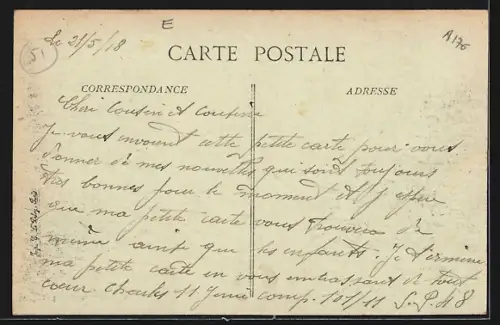 51
Le 21/5/18
E
A176
CARTE POSTALE
CORRESPONDANCE
ADRESSE
Cheri Cousin et Cousine
Je vous envoient cette petite carte pour vous
donner de mes nouvelles qui sont toujours
tres bonnes pour le moment et j'espere
que ma petite carte vous trouvera de
même ainsi que les enfants. Je termine
ma petite carte en vous embrassant de tout
cœur Charles 11 comp. 101/11 S.P. 48